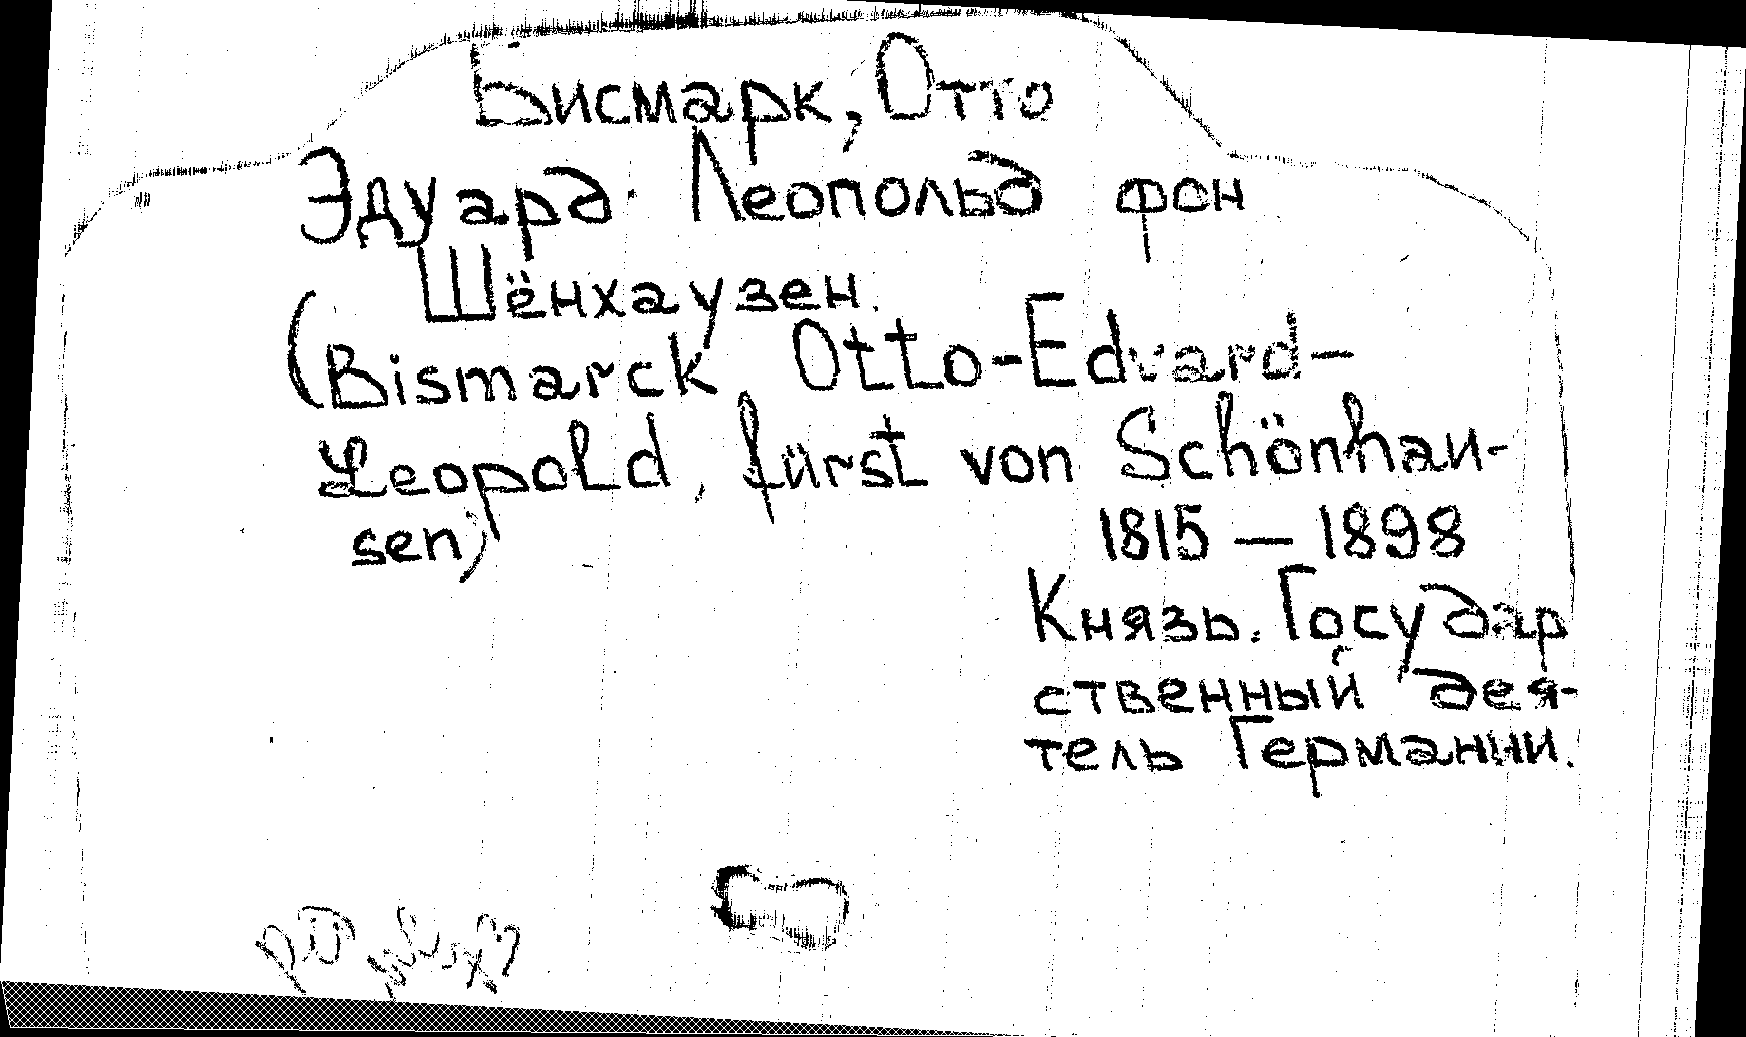 Бисмарк, Отто
Эдуард Леопольд фон
Шёнхаузен.
(Bismarck Otto-Edvard-
Leopold, fürst von Schönhau-
sen)
1815 – 1898
Князь. Государ
ственный дея-
тель Германии.